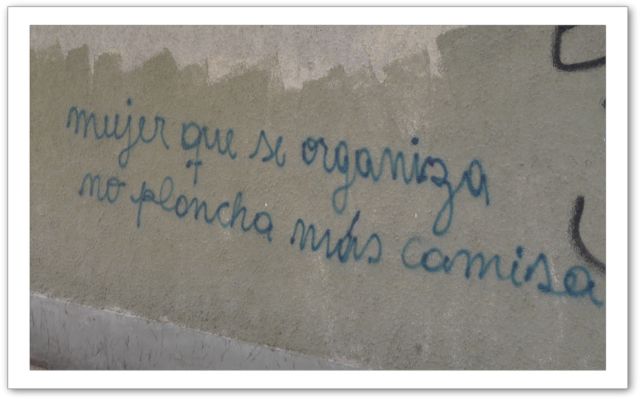 mujer que se organiza
no plancha más camisa